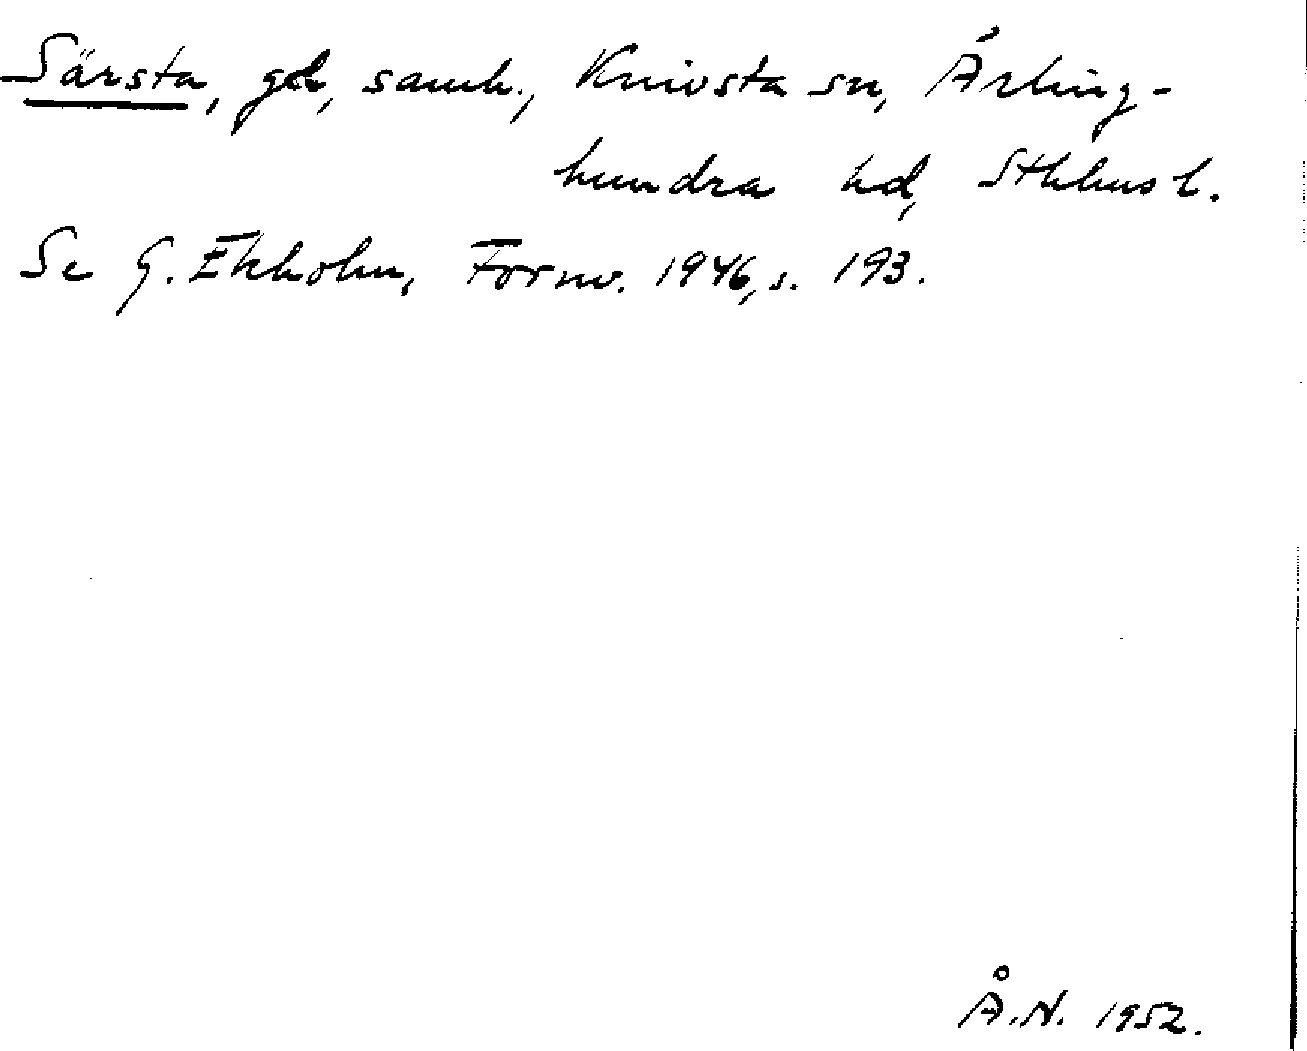 Särsta, gd, samh., Knivsta sn, Ärling-
hundra hd, Sthlms l.
Se G. Ekholm, Fornv. 1946, s. 193.
Å.N. 1952.